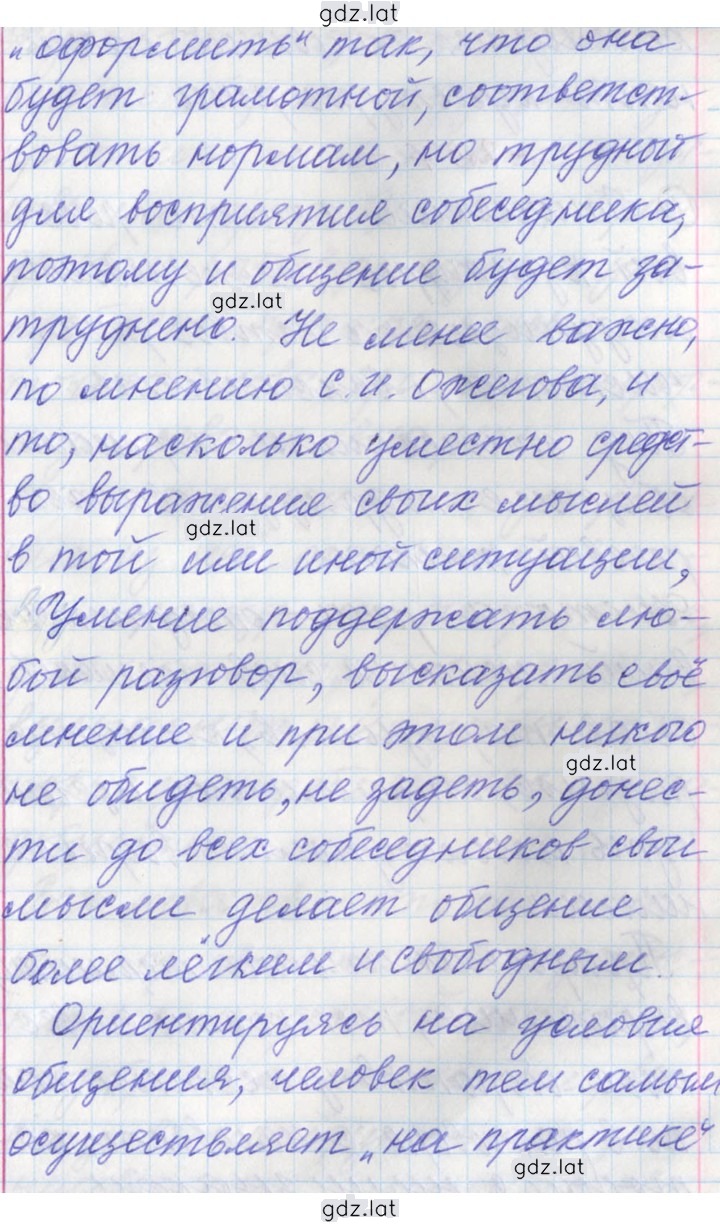 gdz.lat
„оформить" так, что она
будет грамотной, соответст-
вовать нормам, но трудный
для восприятия собеседника,
поэтому и общение будет за-
gdz.lat
труднено. Не менее важно,
по мнению С.И. Ожегова, и
то, насколько уместно средст-
во выражения своих мыслей
gdz.lat
в той или иной ситуации,
Умение поддержать лю-
бой разговор, высказать своё
мнение и при этом никого
gdz.lat
не обидеть, не задеть, донес-
ти до всех собеседников свои
мысли делает общение
более лёгким и свободным.
Ориентируясь на условия
общения, человек тем самым
осуществляет „на практике"
gdz.lat
gdz.lat